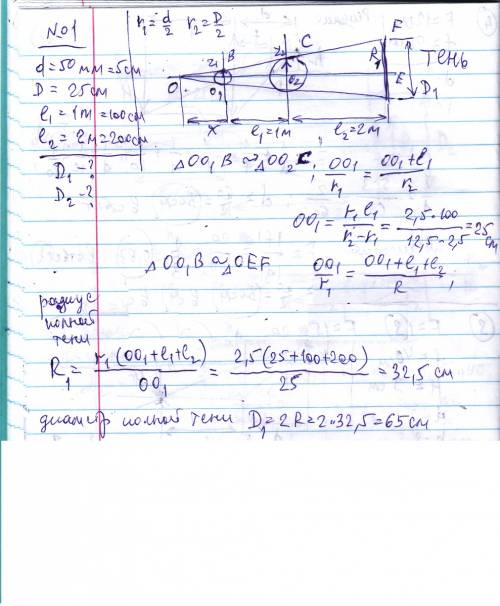 №1
r₁ = d/2 r₂ = D/2
d = 50 мм = 5 см
D = 25 см
l₁ = 1 м = 100 см
l₂ = 2 м = 200 см
D₁ - ?
D₂ - ?
B C F
r₁ r₂ R₁ тень
O O₁ O₂ E D₁
x l₁ = 1 м l₂ = 2 м
△OO₁B ∾ △OO₂C; OO₁/r₁ = (OO₁ + l₁)/r₂
OO₁ = r₁l₁/(r₂ - r₁) = 2,5·100/(12,5 - 2,5) = 25 см
△OO₁B ∾ △OEF OO₁/r₁ = (OO₁ + l₁ + l₂)/R,
радиус
полной
тени
R₁ = r₁(OO₁ + l₁ + l₂)/OO₁ = 2,5(25 + 100 + 200)/25 = 32,5 см
диаметр полной тени D₁ = 2R = 2·32,5 = 65 см